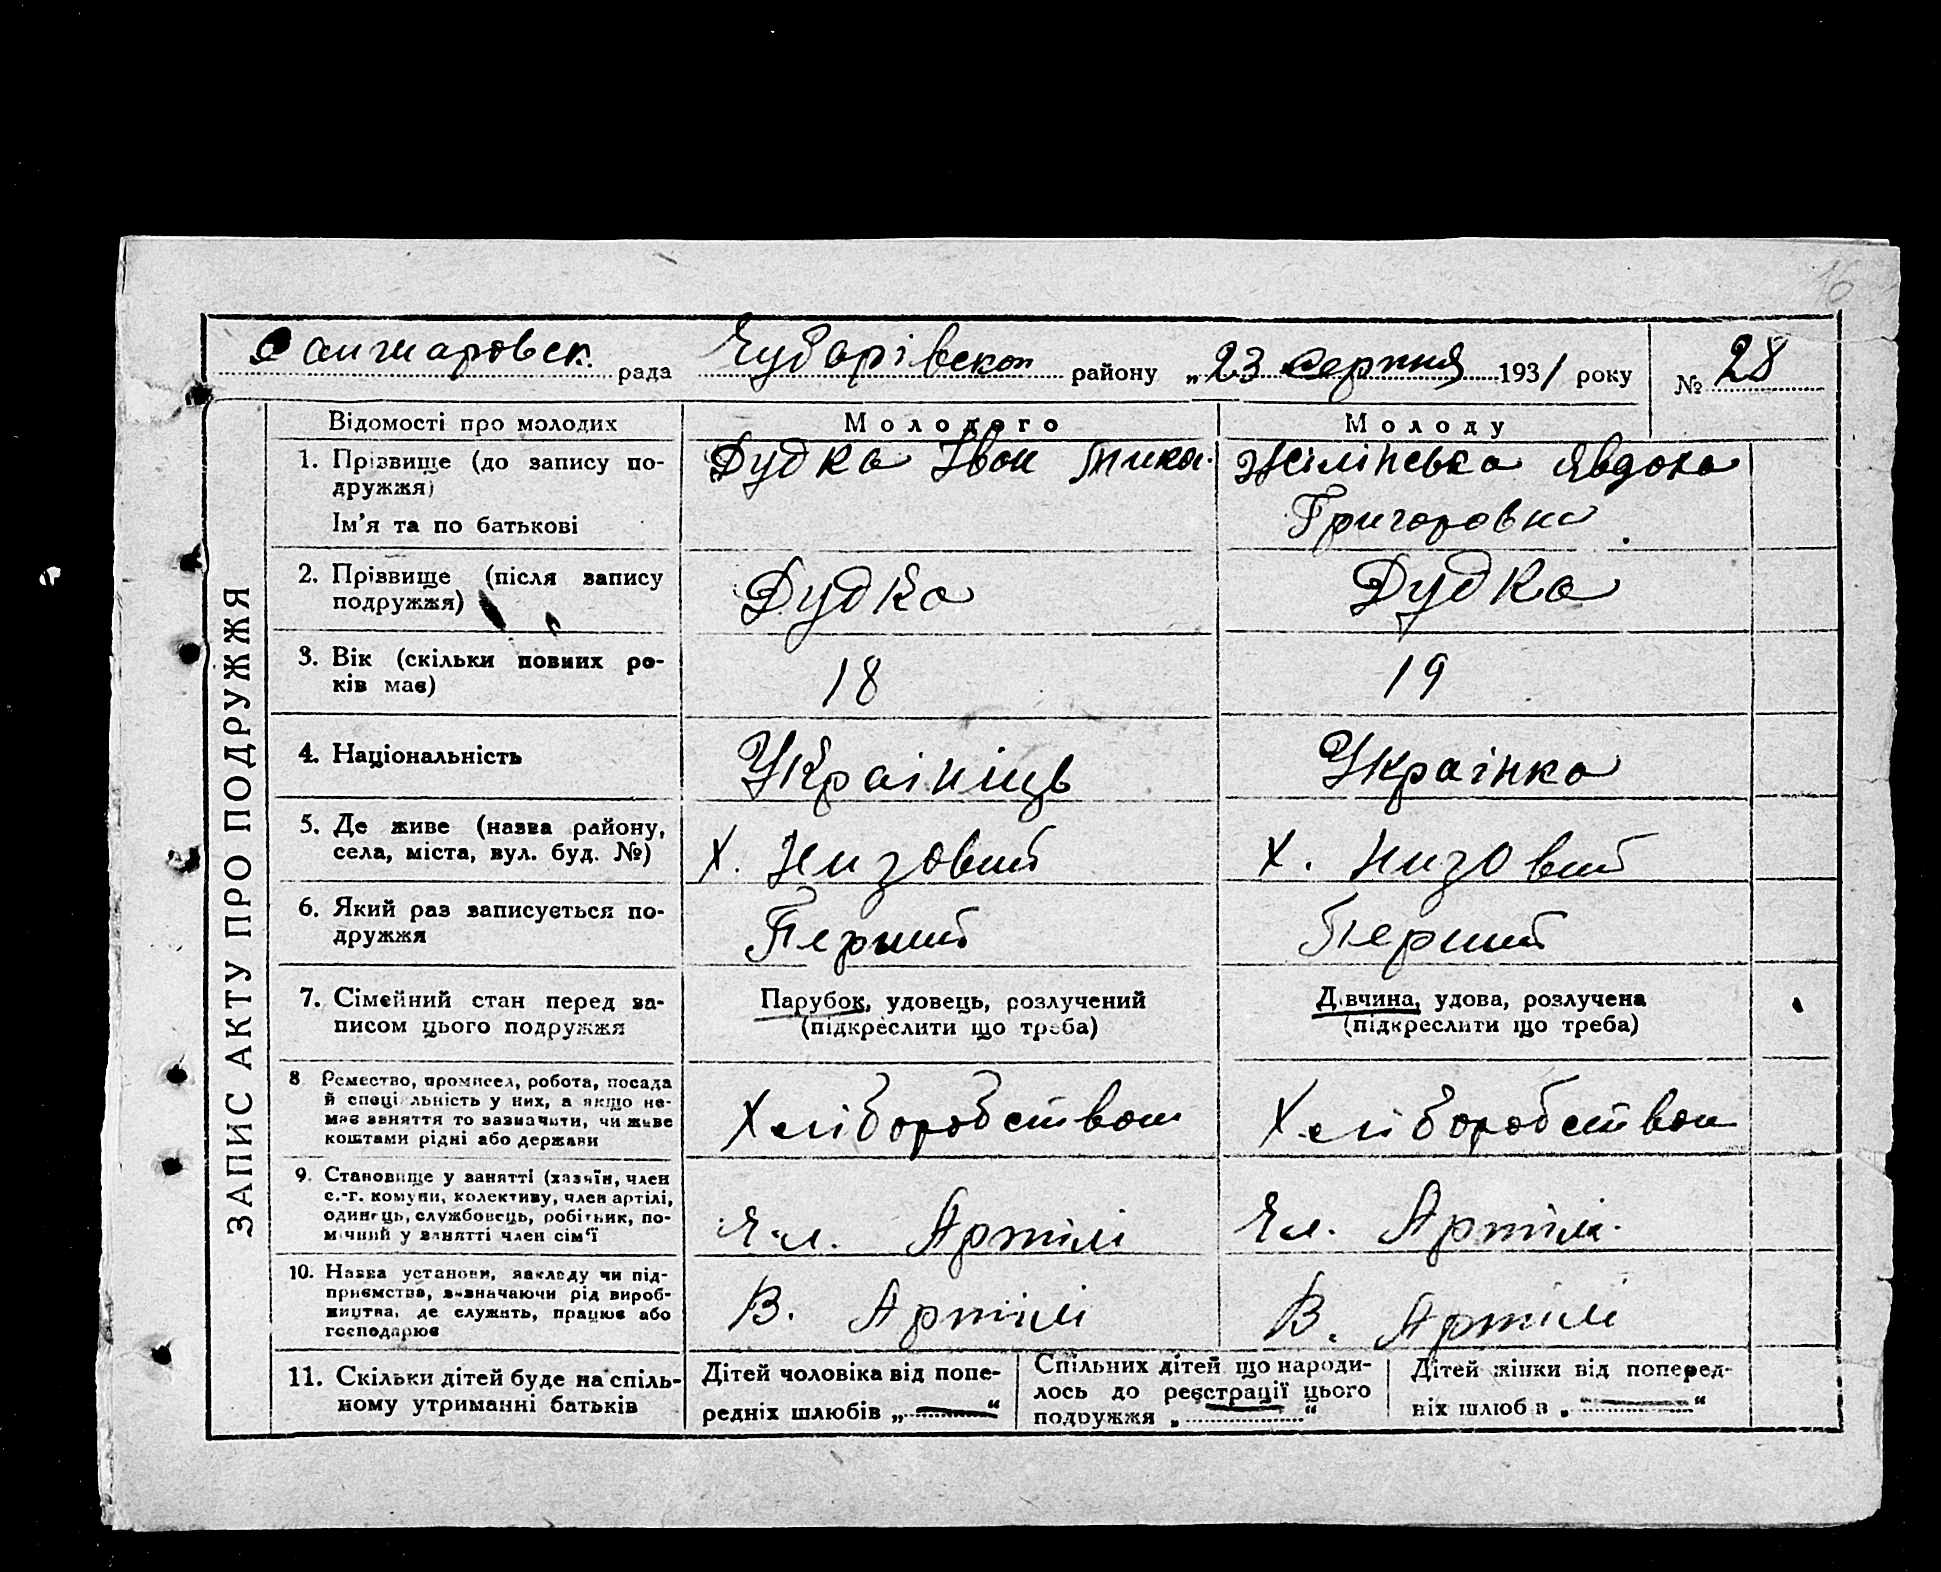 16
Сангиаровск. рада Чубарівском району „23 серпня 1931 року № 28
ЗАПИС АКТУ ПРО ПОДРУЖЖЯ
Відомості про молодих Молодого Молоду
1. Прізвище (до запису по-
дружжя)
Ім'я та по батькові
Дудка Іван Жилінська Явдоха
Григоровна
2. Прізвище (після запису
подружжя)
Дудка Дудка
3. Вік (скільки повних ро-
ків має)
18 19
4. Національність
Украініць Украінка
5. Де живе (назва району,
села, міста, вул. буд. №)
Х. Низовий Х. Низовий
6. Який раз записується по-
дружжя
Перший Перший
7. Сімейний стан перед за-
писом цього подружжя
Парубок, удовець, розлучений
(підкреслити що треба)
Дівчина, удова, розлучена
(підкреслити що треба)
8 Ремество, промисел, робота, посада
й спеціальність у них, а якщо не-
має заняття то зазначити, чи живе
коштами рідні або держави
Хліборобством Хліборобством
9. Становище у занятті (хазяїн, член
с.-г. комуни, колективу, член артілі,
одинець, службовець, робітник, по-
мічний у занятті член сім'ї
Чл. Артілі Чл. Артілі
10. Назва установи, закладу чи під-
приємства, зазначаючи рід вироб-
ництва, де служить, працює або
господарює
В. Артілі В. Артілі
11. Скільки дітей буде на спіль-
ному утриманні батьків
Дітей чоловіка від попе-
редніх шлюбів „—“
Спільних дітей що народи-
лось до реєстрації цього
подружжя „ “
Дітей жінки від поперед-
ніх шлюбів „—“